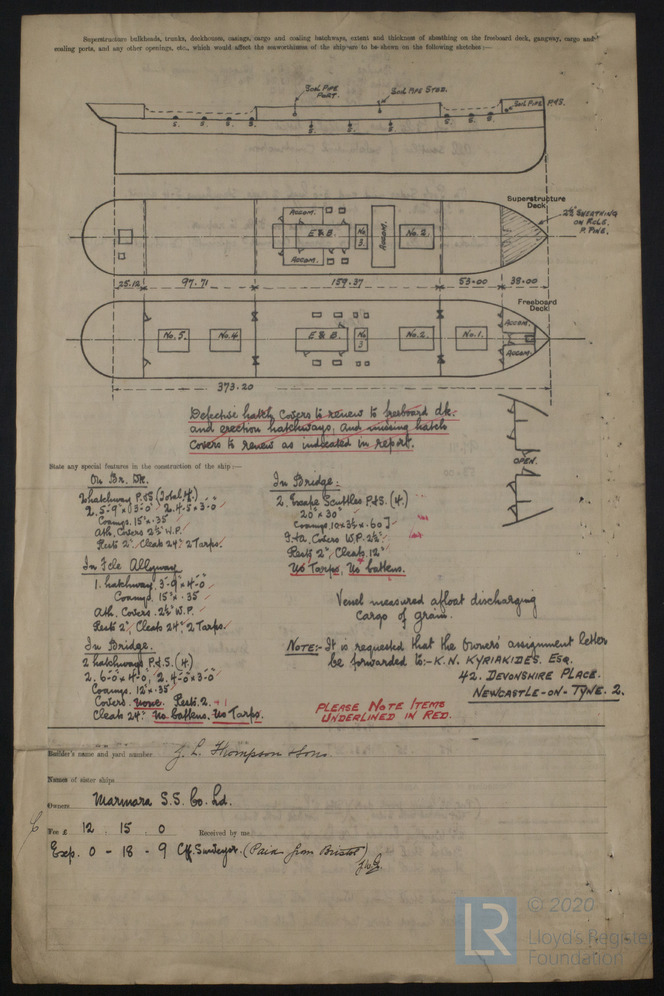 Superstructure bulkheads, trunks, deckhouses, casings, cargo and coaling hatchways, extent and thickness of sheathing on the freeboard deck, gangway, cargo and
coaling ports, and any other openings, etc., which would affect the seaworthiness of the ship are to be shown on the following sketches:—
Soil Pipe
Port.
Soil Pipe Stbd.
Soil Pipe P.&S.
S. S. S. S. S. S. S. S. S. S.
Superstructure
Deck
2½" Sheathing
on Fcle.
P. Pine.
Accom.
E & B.
No 3.
Accom.
No. 2.
Accom.
25.12
97.71
159.37
53.00
38.00
Freeboard
Deck
No. 5.
No. 4
E & B.
No 3
No. 2.
No. 1.
Accom.
Accom.
373.20
Defective hatch covers to renew to freeboard dk.
and erection hatchways, and missing hatch
covers to renew as indicated in report.
OPEN.
State any special features in the construction of the ship:—
On Br. Dk.
2 hatchways P.&S. (Total 4.)
2. 5-9" x 3-0" 2. 4-5 x 3-0"
Coamgs. 15" x .35
Ath. Covers 2½" W.P.
Rests 2". Cleats 24". 2 Tarps.
In Fcle Alleyway
1. hatchway 3-9" x 4-0"
Coamgs. 15" x .35
Ath. Covers. 2½" W.P.
Rests 2", Cleats 24", 2 Tarps.
In Bridge.
2 hatchways P.&S. (4)
2. 6-0 x 4-0, 2. 4-0 x 3-0
Coamgs. 12" x .35
Covers. none. Rests. 2.
Cleats 24" No battens. No Tarps.
In Bridge:
2. Escape Scuttles P.&S. (4.)
20" x 30"
Coamgs. 10 x 3½ x .60 ]
F.&A. Covers W.P. 2½"
Rests 2", Cleats. 12"
No Tarps, No battens.
Vessel measured afloat discharging
cargo of grain.
Note:- It is requested that the Owners' assignment letter
be forwarded to:- K.N. KYRIAKIDES. Esq.
42. DEVONSHIRE PLACE.
NEWCASTLE-ON-TYNE. 2.
PLEASE NOTE ITEMS
UNDERLINED IN RED.
Builder's name and yard number J. L. Thompson & Sons.
Names of sister ships
Owners Marmara S.S. Co. Ltd.
Fee £ 12 . 15 . 0 Received by me
Exp. 0 - 18 - 9 Cff. Surveyor. (Paid from Bristol)
LR
© 2020
Lloyd's Register
Foundation